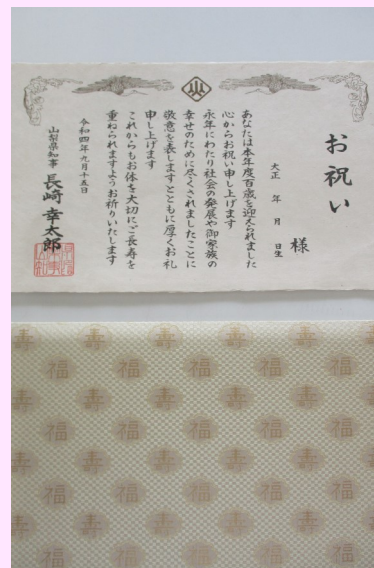 お祝い
様
大正 年 月 日生
あなたは本年度百歳を迎えられました
心からお祝い申し上げます
永年にわたり社会の発展や御家族の
幸せのために尽くされましたことに
敬意を表しますとともに厚くお礼
申し上げます
これからもお体を大切にご長寿を
重ねられますようお祈りいたします
令和四年九月十五日
山梨県知事 長崎 幸太郎
寿 寿 寿
福 福 福 福
寿 寿 寿
福 福 福 福
寿 寿 寿
福 福 福 福
寿 寿 寿
福 福 福 福